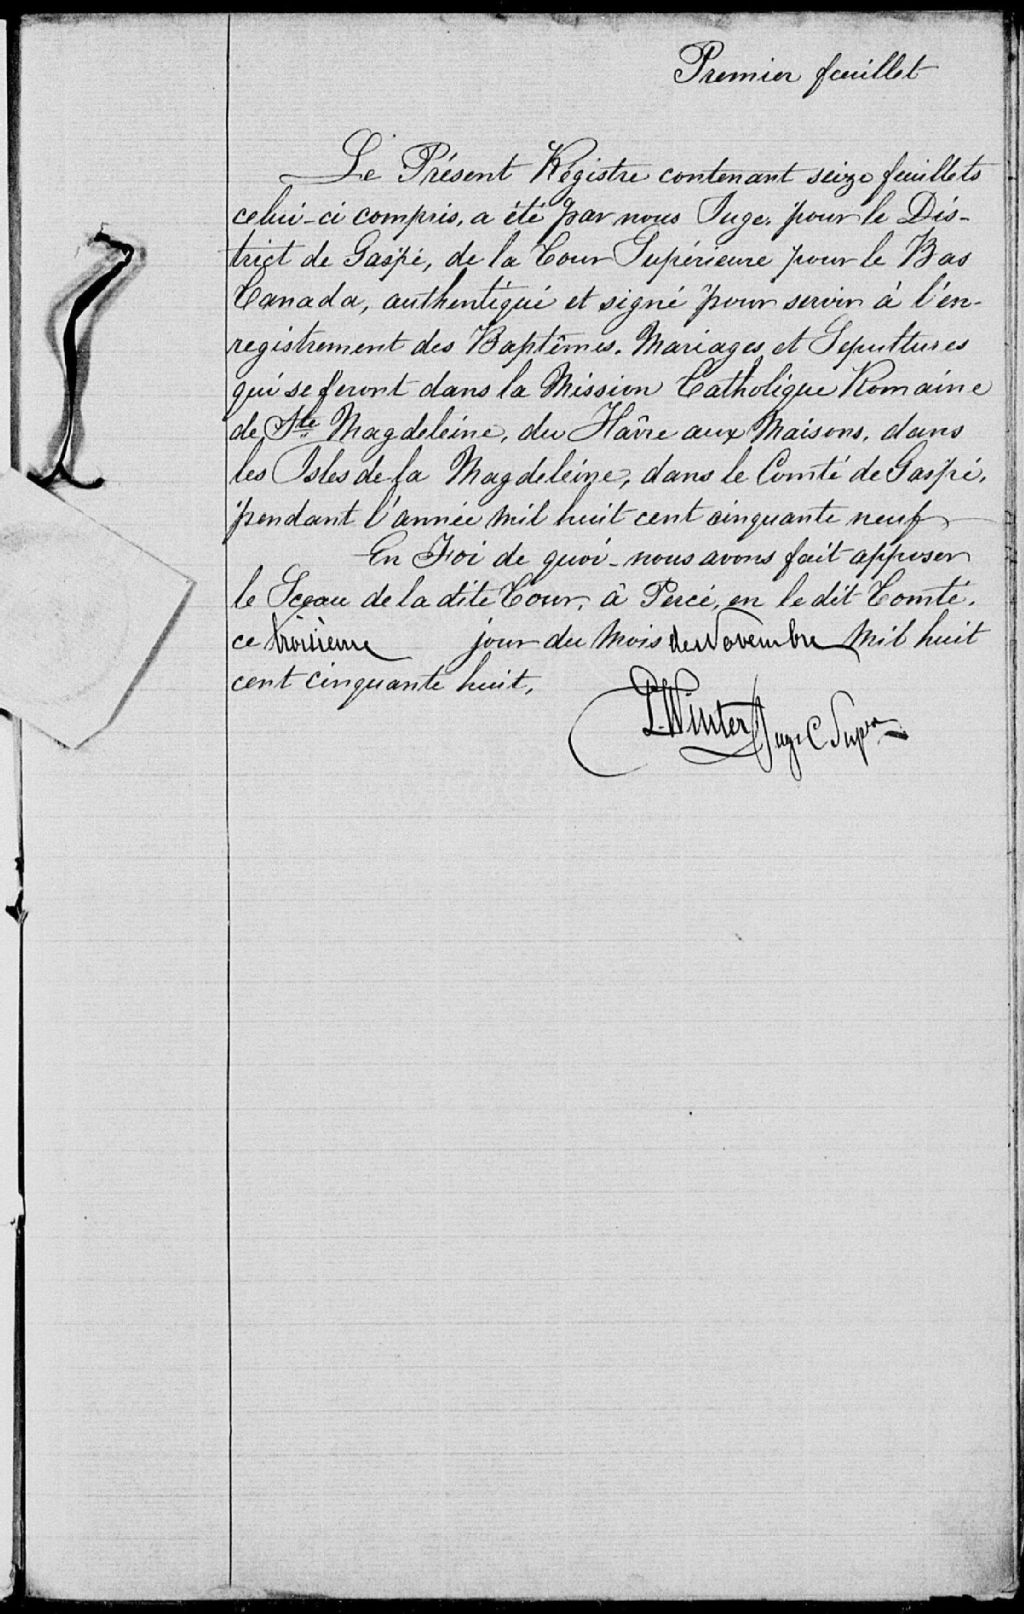 Premier feuillet
Le Présent Régistre contenant seize feuillets
celui-ci compris, a été par nous Juge, pour le Dis-
trict de Gaspé, de la Cour Supérieure pour le Bas
Canada, authentiqué et signé pour servir à l'en-
registrement des Baptêmes, Mariages et Sepultures
qui se feront dans la Mission Catholique Romaine
de Ste Magdeleine, du Hâvre aux Maisons, dans
les Isles de la Magdeleine, dans le Comté de Gaspé,
pendant l'année mil huit cent cinquante neuf
En Foi de quoi nous avons fait apposer
le Sceau de la dite Cour, à Percé, en le dit Comté,
ce troisieme jour du mois de Novembre mil huit
cent cinquante huit,
P. Winter Juge C Supre